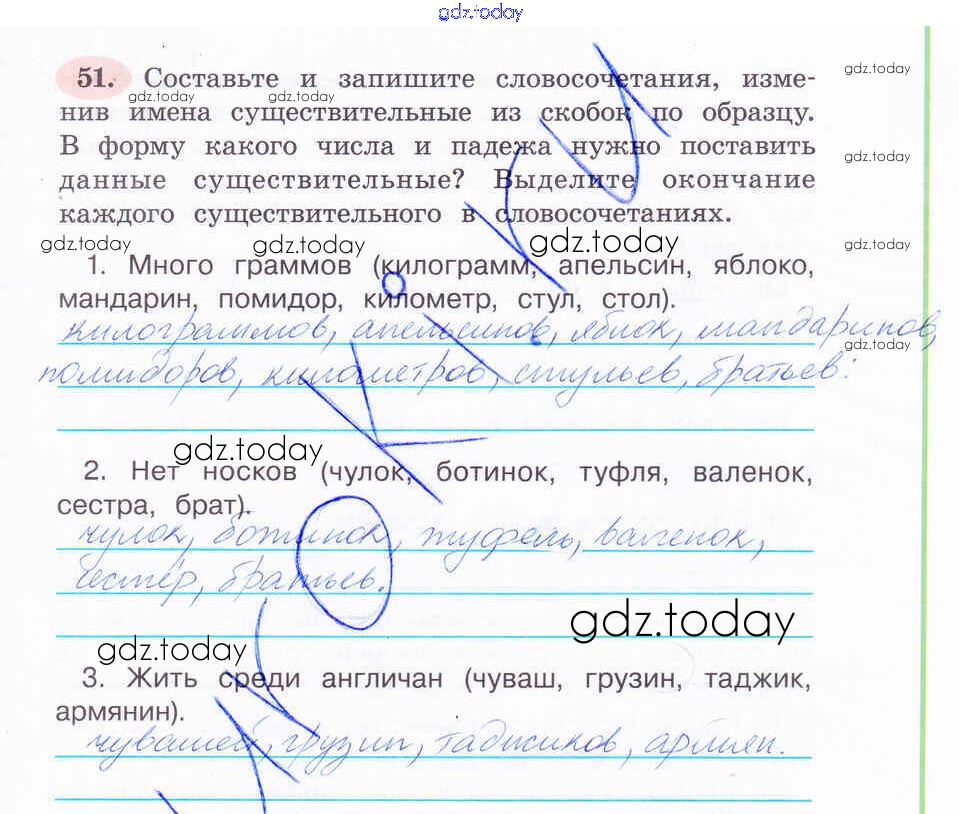 gdz.today
51. Составьте и запишите словосочетания, изме-
gdz.today
gdz.today gdz.today
нив имена существительные из скобок по образцу.
В форму какого числа и падежа нужно поставить
gdz.today
данные существительные? Выделите окончание
каждого существительного в словосочетаниях.
gdz.today gdz.today gdz.today gdz.today
1. Много граммов (килограмм, апельсин, яблоко,
мандарин, помидор, километр, стул, стол).
килограммов, апельсинов, яблок, мандаринов,
gdz.today
помидоров, километров, стульев, братьев.
gdz.today
2. Нет носков (чулок, ботинок, туфля, валенок,
сестра, брат).
чулок, ботинок, туфель, валенок,
сестёр, братьев.
gdz.today
gdz.today
3. Жить среди англичан (чуваш, грузин, таджик,
армянин).
чувашей, грузин, таджиков, армян.